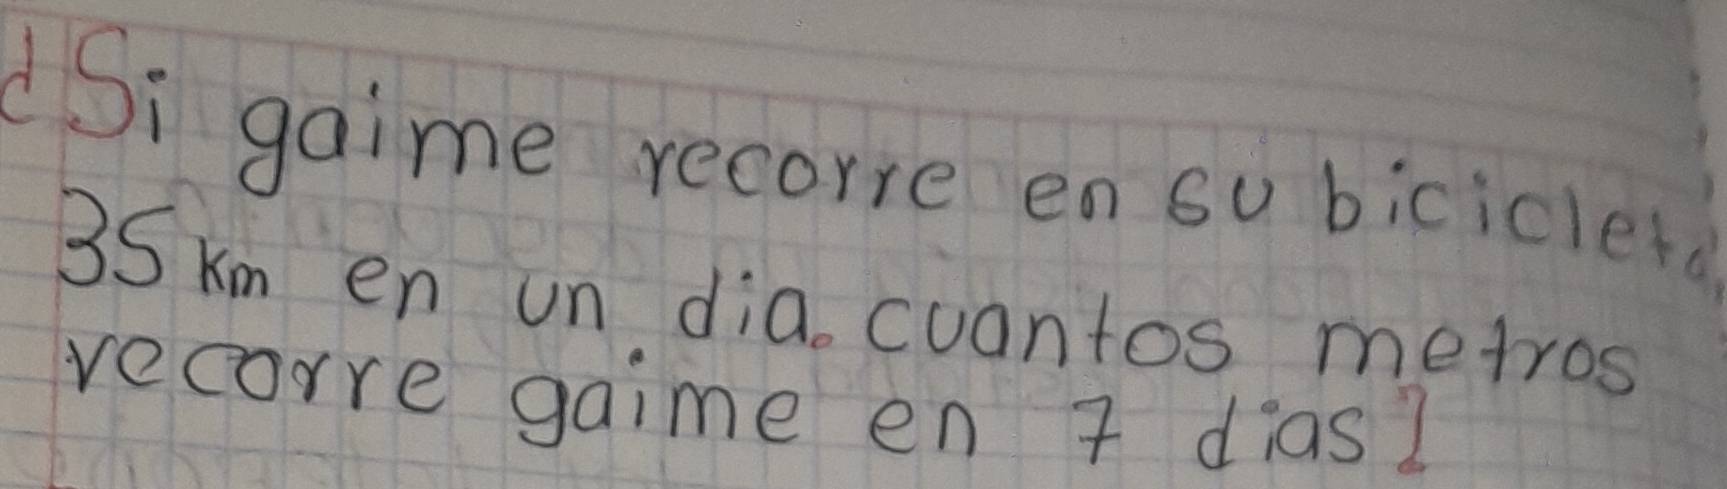 ¿Si gaime recorre en su bicicleta
35 km en un dia. cuantos metros
recorre gaime en 7 dias?